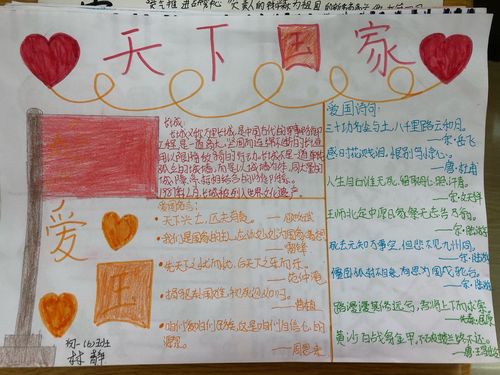 天下国家
长城:
长城又称万里长城,是中国古代的军事防御
工程,是一道高大、坚固而连绵不断的长垣,
用以限隔敌骑的行动。长城不是一道单纯
孤立的城墙,而是以城墙为主体,同大量的
1987年12月,长城被列入世界文化遗产。
爱国名言:
• 天下兴亡,匹夫有责。
• 先天下之忧而忧,后天下之乐而乐。
——范仲淹
• 捐躯赴国难,视死忽如归。
——曹植
——周恩来
爱国
爱国诗句:
三十功名尘与土,八千里路云和月。
——宋·岳飞
感时花溅泪,恨别鸟惊心。
——唐·杜甫
人生自古谁无死,留取丹心照汗青。
——宋·文天祥
王师北定中原日,家祭无忘告乃翁。
——宋·陆游
死去元知万事空,但悲不见九州同。
——宋·陆游
僵卧孤村不自哀,尚思为国戍轮台。
——宋·陆游
路漫漫其修远兮,吾将上下而求索。
黄沙百战穿金甲,不破楼兰终不还。
——唐·王昌龄